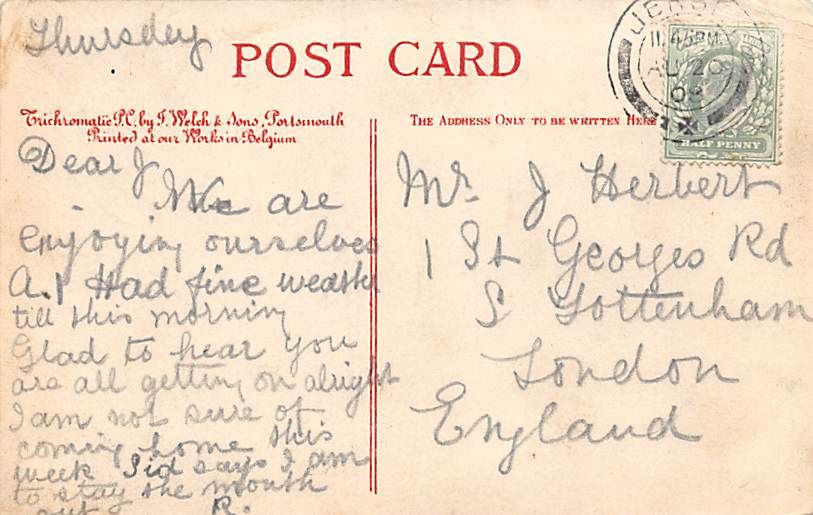 Thursday
POST CARD
Trichromatic P.C. by F. Welch & Sons, Portsmouth
Printed at our Works in Belgium
THE ADDRESS ONLY TO BE WRITTEN HERE
JERSEY
11.45PM
AU 20
HALF PENNY
Dear J
We are
enjoying ourselves
A.1 Had fine weather
till this morning
Glad to hear you
are all getting on alright
I am not sure of
coming home this
week Sid says I am
to stay the month
out R.
Mr. J Herbert
1 St Georges Rd
S Tottenham
London
England